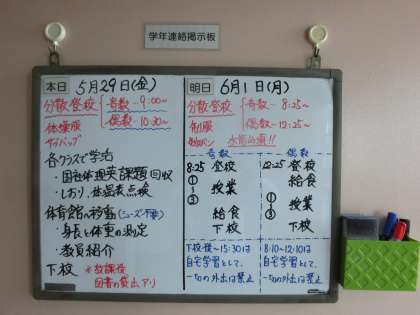 学年連絡掲示板
本日 5月29日(金)
分散登校 奇数-9:00〜
偶数-10:30〜
体操服
サブバッグ
各クラスで学活
・国社体理英課題回収
・しおり、体温表点検
体育館へ移動(シューズ不要)
・身長と体重の測定
・教員紹介
下校 *放課後
図書の貸出アリ
明日 6月1日(月)
分散登校 奇数-8:25〜
制服 偶数-12:25〜
水筒必須!!
奇数
8:25 登校
① 授業
③
給食
下校
下校後〜15:30は
自宅学習として、
一切の外出は禁止
偶数
12:25 登校
給食
① 授業
③
下校
8:10-12:10は
自宅学習として
一切の外出は禁止